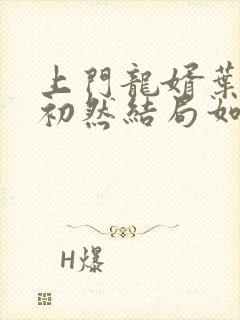 上門龍婿葉
初然結局如
H爆